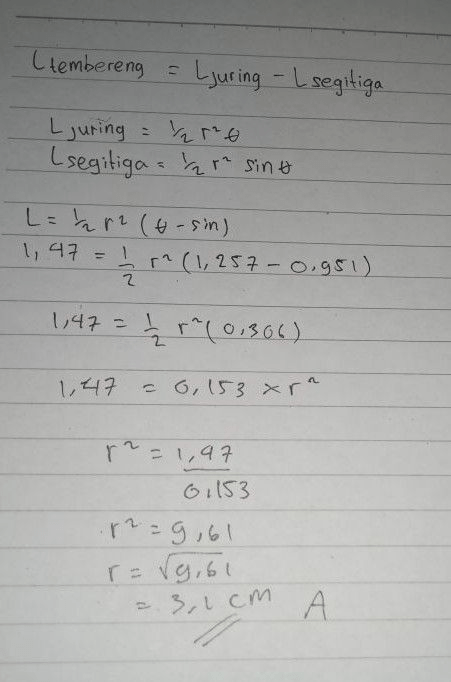 Ltembereng = Ljuring - Lsegitiga
Ljuring = 1/2 r² θ
Lsegitiga = 1/2 r² sin θ
L = 1/2 r² (θ - sin)
1,47 = 1/2 r² (1,257 - 0,951)
1,47 = 1/2 r² (0,306)
1,47 = 0,153 × r²
r² = 1,47/0,153
r² = 9,61
r = √9,61
= 3,1 cm A